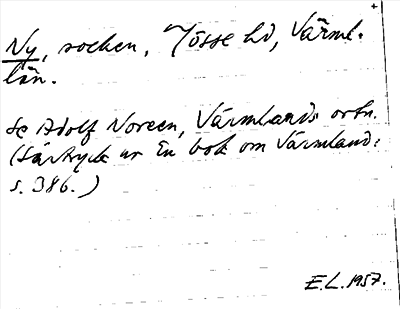 Ny, socken, Jösse hd, Värml.
län.
Se Adolf Noreen, Värmlands ortn.
(Särtryck ur En bok om Värmland:
s. 386.)
E.L. 1957.